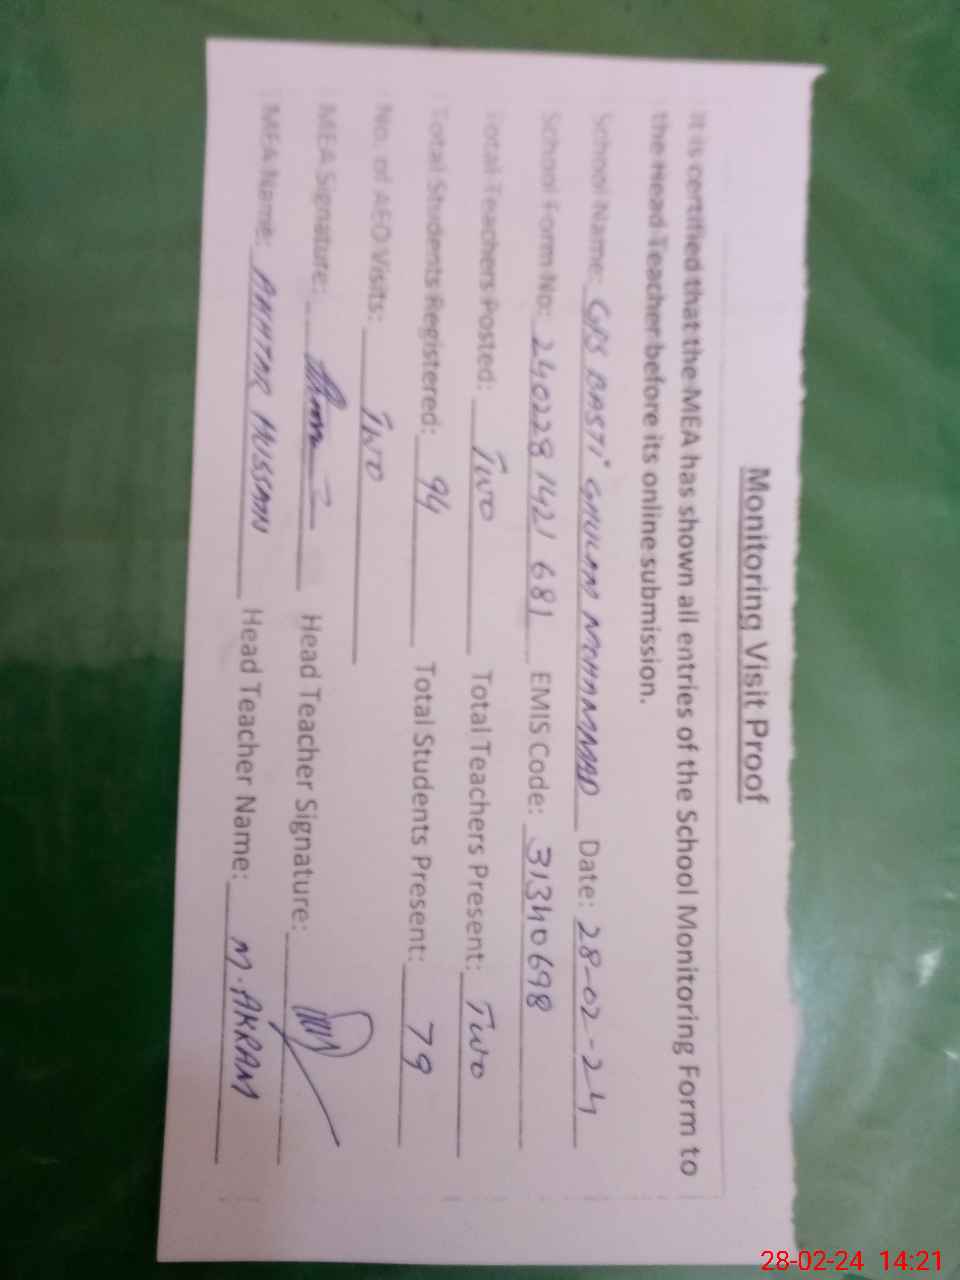 Monitoring Visit Proof
It is certified that the MEA has shown all entries of the School Monitoring Form to
the Head Teacher before its online submission.
School Name: GPS BASTI GHULAM MOHAMMAD Date: 28-02-24
School Form No: 2402281421681 EMIS Code: 31340698
Total Teachers Posted: Two Total Teachers Present: Two
Total Students Registered: 94 Total Students Present: 79
No. of AEO Visits: Two
MEA Signature: Head Teacher Signature:
MEA Name: AKHTAR HUSSAIN Head Teacher Name: M. AKRAM
28-02-24 14:21